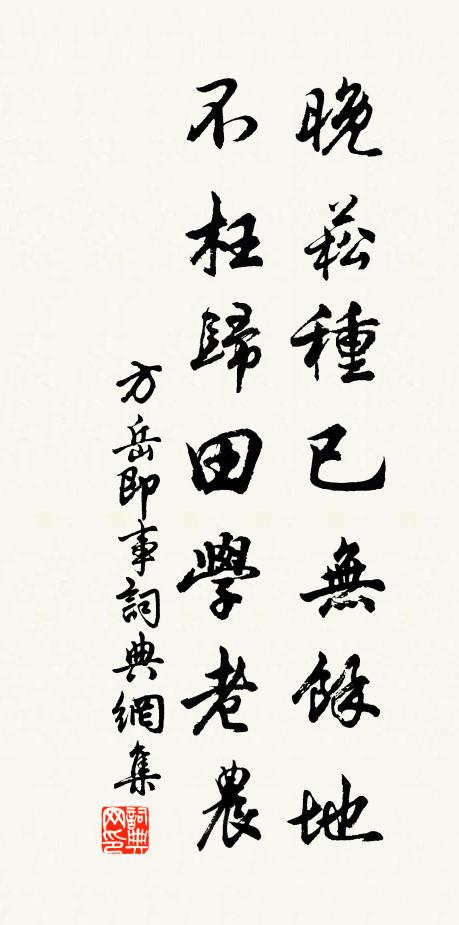 晚菘種已無餘地
不枉歸田學老農
方岳即事詞典網集
詞典網印